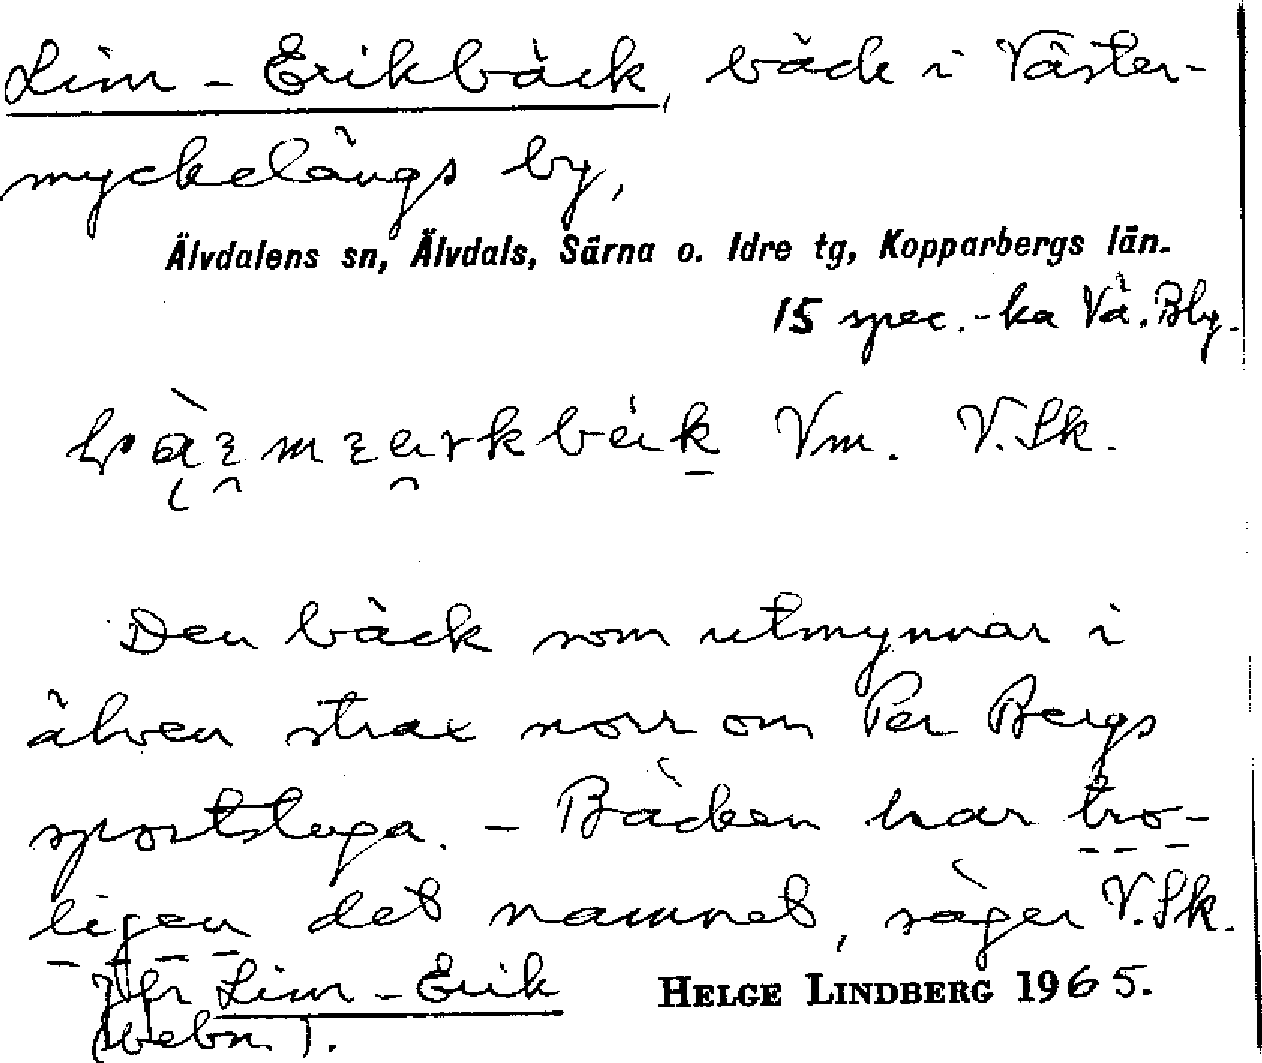 Lim-Erikbäck, bäck i Väster-
myckelängs by,
Älvdalens sn, Älvdals, Särna o. Idre tg, Kopparbergs län.
15 spec.-ka Vä. Bly.
Vm. V.Sk.
Den bäck som utmynnar i
älven strax norr om Per Bergs
sportstuga. - Bäcken har tro-
ligen det namnet, säger V.Sk.
Jfr Lim-Erik
HELGE LINDBERG 1965.
(bebn.).